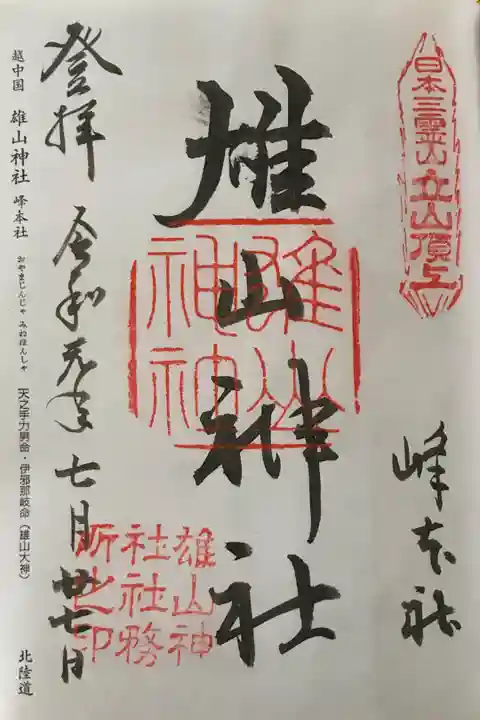 日本三霊山立山頂上
峰本社
雄山神社
雄山
神神
雄山神
社社務
所之印
登拝 令和元年七月廿七日
越中国 雄山神社 峰本社 おやまじんじゃ みねほんしゃ 天之手力男命・伊邪那岐命(雄山大神) 北陸道